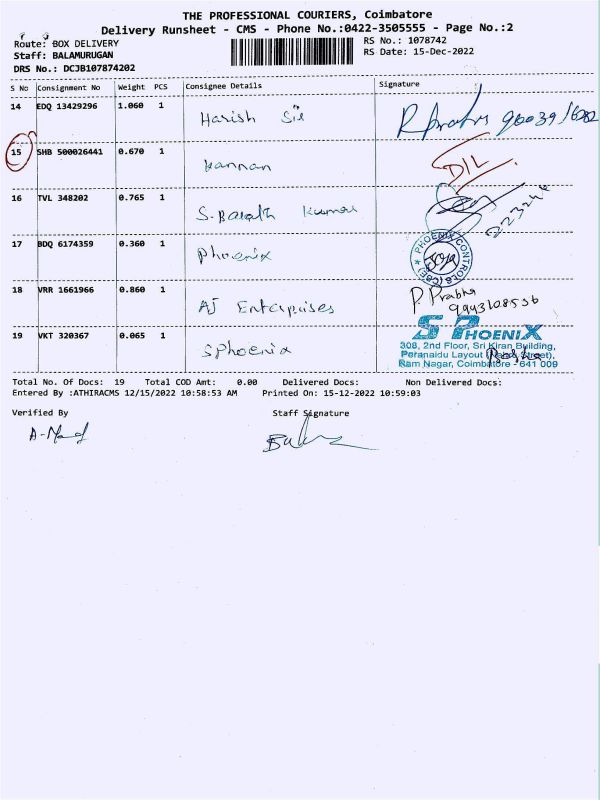 THE PROFESSIONAL COURIERS, Coimbatore
Delivery Runsheet - CMS - Phone No.:0422-3505555 - Page No.:2
Route: BOX DELIVERY
RS No.: 1078742
Staff: BALAMURUGAN
RS Date: 15-Dec-2022
DRS No.: DCJB107874202
S No Consignment No Weight PCS Consignee Details Signature
14 EDQ 13429296 1.060 1 Harish
15 SHB 500026441 0.670 1 Kannan DIL
16 TVL 348202 0.765 1 S. Barath Kumar
17 BDQ 6174359 0.360 1 Phoenix PHOENIX CONTROLS (CBE)
18 VRR 1661966 0.860 1 AJ Enterprises P. Prabha
19 VKT 320367 0.065 1 SPhoenix
S PHOENIX
308, 2nd Floor, Sri Kiran Building,
Peranaidu Layout Street),
Ram Nagar, Coimbatore - 641 009
Total No. Of Docs: 19 Total COD Amt: 0.00 Delivered Docs: Non Delivered Docs:
Entered By :ATHIRACMS 12/15/2022 10:58:53 AM Printed On: 15-12-2022 10:59:03
Verified By Staff Signature